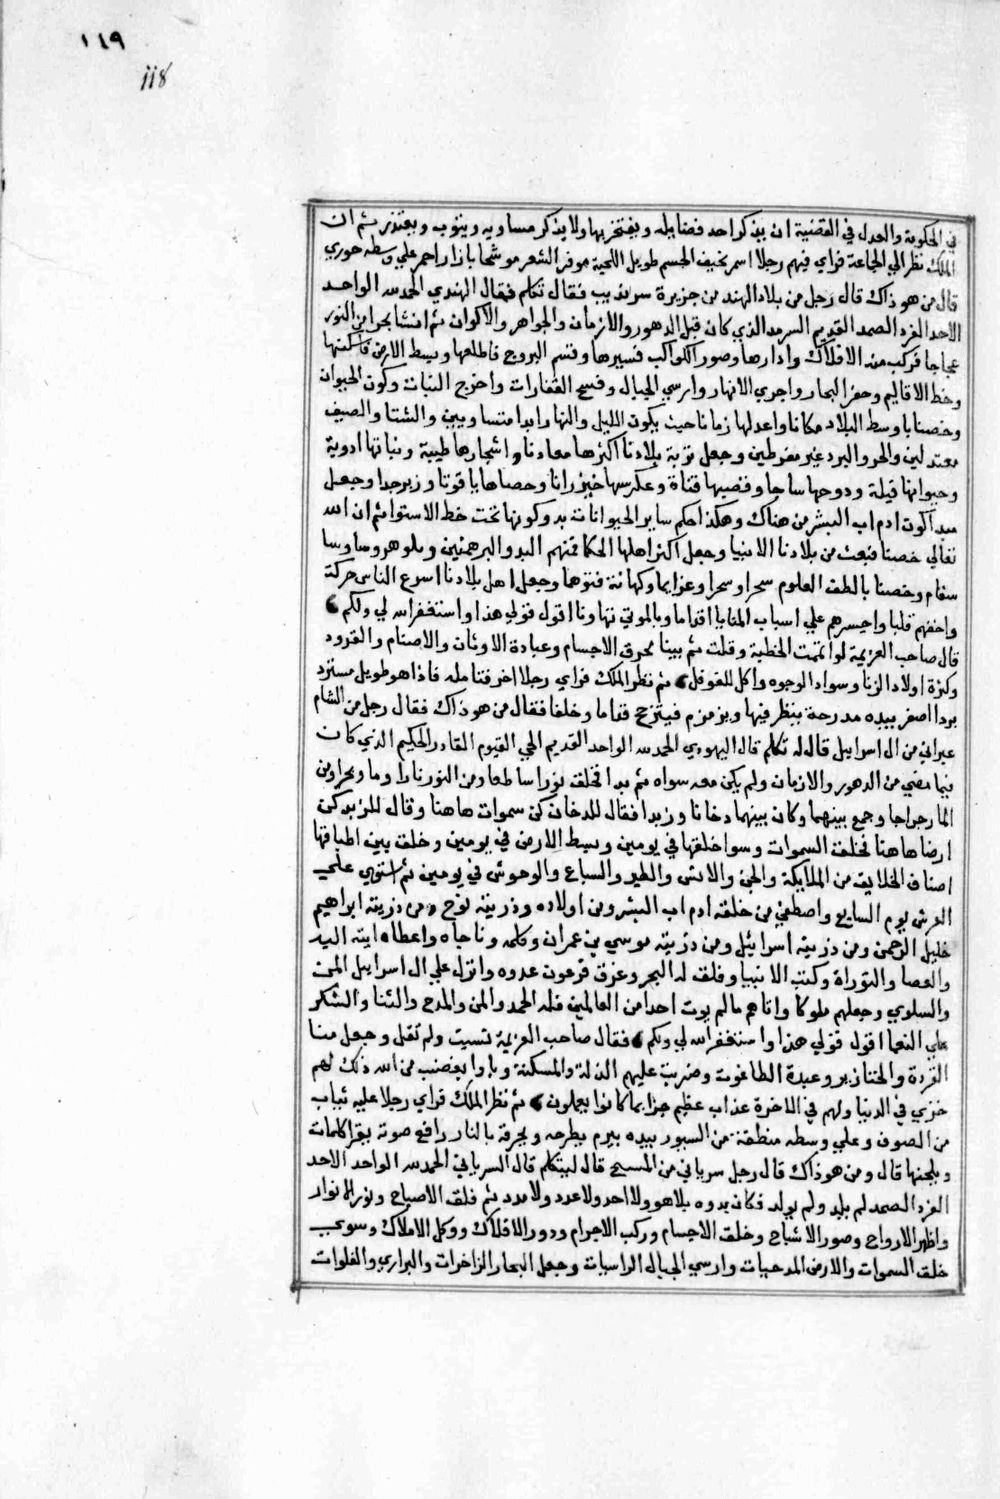 ١٤٩
118
في الحكومة والعدل في القضية ان يذكر احد فضايله ويفتخر بها ولا يذكر مساويه ويتوب ويعتذر ثم ان
الملك نظر الي الجماعة فراي فيهم رجلا اسمر نحيف الجسم طويل اللحية موفر الشعر موشحا بازار احمر علي وسطه حوري
قال من هو ذاك قال رجل من بلاد الهند من جزيرة سرنديب فقال تكلم فقال الهندي الحمد لله الواحد
الاحد الفرد الصمد القديم السرمد الذي كان قبل الدهور والازمان والجواهر والاكوان ثم انشا بحرا من النور
عجاجا فركب منه الافلاك وادارها وصور الكواكب فسيرها وقسم البروج فاطلعها وبسط الارض فاسكنها
وخط الاقاليم وحفر البحار واجري الانهار وارسي الجبال وفسح القفارات واخرج النبات وكون الحيوان
وخصنا باوسط البلاد مكانا واعدلها زمانا حيث يكون الليل والنهار ابدا متساويين والشتا والصيف
معتدلين والحر والبرد غير مفرطين وجعل تربة بلادنا اكثرها معادنا واشجارها طيبة ونباتها ادوية
وحيوانها فيلة ودوحها ساجا وقصبها قناة وعكرسها خيزرانا وحصاها ياقوتا وزبرجدا وجعل
مبدا كون ادم اب البشر من هناك وهكذا حكم ساير الحيوانات بدو كونها تحت خط الاستوا ثم ان الله
تعالي خصنا فبعث من بلادنا الانبيا وجعل اكثر اهلها الحكما فمنهم البد والبرهمنين وبلوهر وساوسا
سفام وخصنا بالطف العلوم سحرا وعزايما وكهانة فتوهما وجعل اهل بلادنا اسرع الناس حركة
واخفهم قلبا واجسرهم علي اسباب المنايا اقداما وبالموتي تهاونا اقول قولي هذا واستغفر الله لي ولكم
قال صاحب العزيمة لو اتممت الخطبة وقلت ثم بينا بحرق الاجسام وعبادة الاوثان والاصنام والقرود
وكثرة اولاد الزنا وسواد الوجوه واكل للفوفل ثم نظر الملك فراي رجلا اخر فتامله فاذا هو طويل مسترد
بردا اصفر بيده مدرجة ينظر فيها ويزمزم فيترجح قداما وخلفا فقال من هو ذاك فقال رجل من الشام
عبراني من ال اسرايل قال له تكلم قال اليهودي الحمد لله الواحد القديم الحي القيوم القادر الحكيم الذي كان
فيما مضي من الدهور والازمان ولم يكن معه سواه ثم بدا فخلق نورا ساطعا ومن النور نارا وما وبحرا ومن
الما رجراجا وجمع بينهما وكان بينهما دخانا وزبدا فقال للدخان كن سموات هاهنا وقال للزبد كن
ارضا هاهنا فخلق السموات وسوا خلقها في يومين وبسط الارض في يومين وخلق بين اطباقها
اصناف الخلايق من الملايكة والجن والانس والطير والسباع والوحوش في يومين ثم استوي علي
العرش يوم السابع واصطفي من خلقه ادم اب البشر ومن اولاده وذريته نوح ومن ذريته ابراهيم
خليل الرحمن ومن ذريته اسرائيل ومن ذريته موسي بن عمران وكلمه وناجاه واعطاه اية اليد
والعصا والتوراة وكتب الانبيا وفلق له البحر وغرق فرعون عدوه وانزل علي ال اسرايل المن
والسلوي وجعلهم ملوكا واتاهم مالم يوت احدا من العالمين فله الحمد والمن والمدح والثنا والشكر
علي النعما اقول قولي هذا واستغفر الله لي ولكم فقال صاحب العزيمة نسيت ولم تقل وجعل منا
القردة والخنازير وعبدة الطاغوت وضربت عليهم الذلة والمسكنة وباوا بغضب من الله ذلك لهم
خزي في الدنيا ولهم في الاخرة عذاب عظيم جزا بما كانوا يعملون ثم نظر الملك فراي رجلا عليه ثياب
من الصوف وعلي وسطه منطقة من السيور بيده بيرم يطرحه ويحرقه بالنار رافع صوته يقرا كلمات
ويلحنها قال ومن هو ذاك قال رجل سرياني من المسيح قال ليتكلم قال السرياني الحمد لله الواحد الاحد
الفرد الصمد لم يلد ولم يولد فكان بدوه بلا هو ولا احد ولا عدد ولا مدد ثم فلق الاصباح ونور الانوار
واظهر الارواح وصور الاشباح وخلق الاجسام وركب الاجرام ودور الافلاك ووكل الاملاك وسوي
خلق السموات والارض المدحيات وارسي الجبال الراسيات وجعل البحار الزاخرات والبراري والفلوات